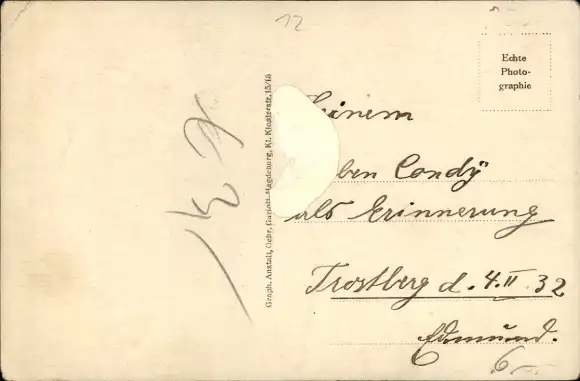 12
Echte
Photo-
graphie
Graph. Anstalt, Gebr. Garloff, Magdeburg, Kl. Klosterstr. 15/16
einem
ben Condy"
als Erinnerung
Trostberg d. 4.II.32
Edmund.
6